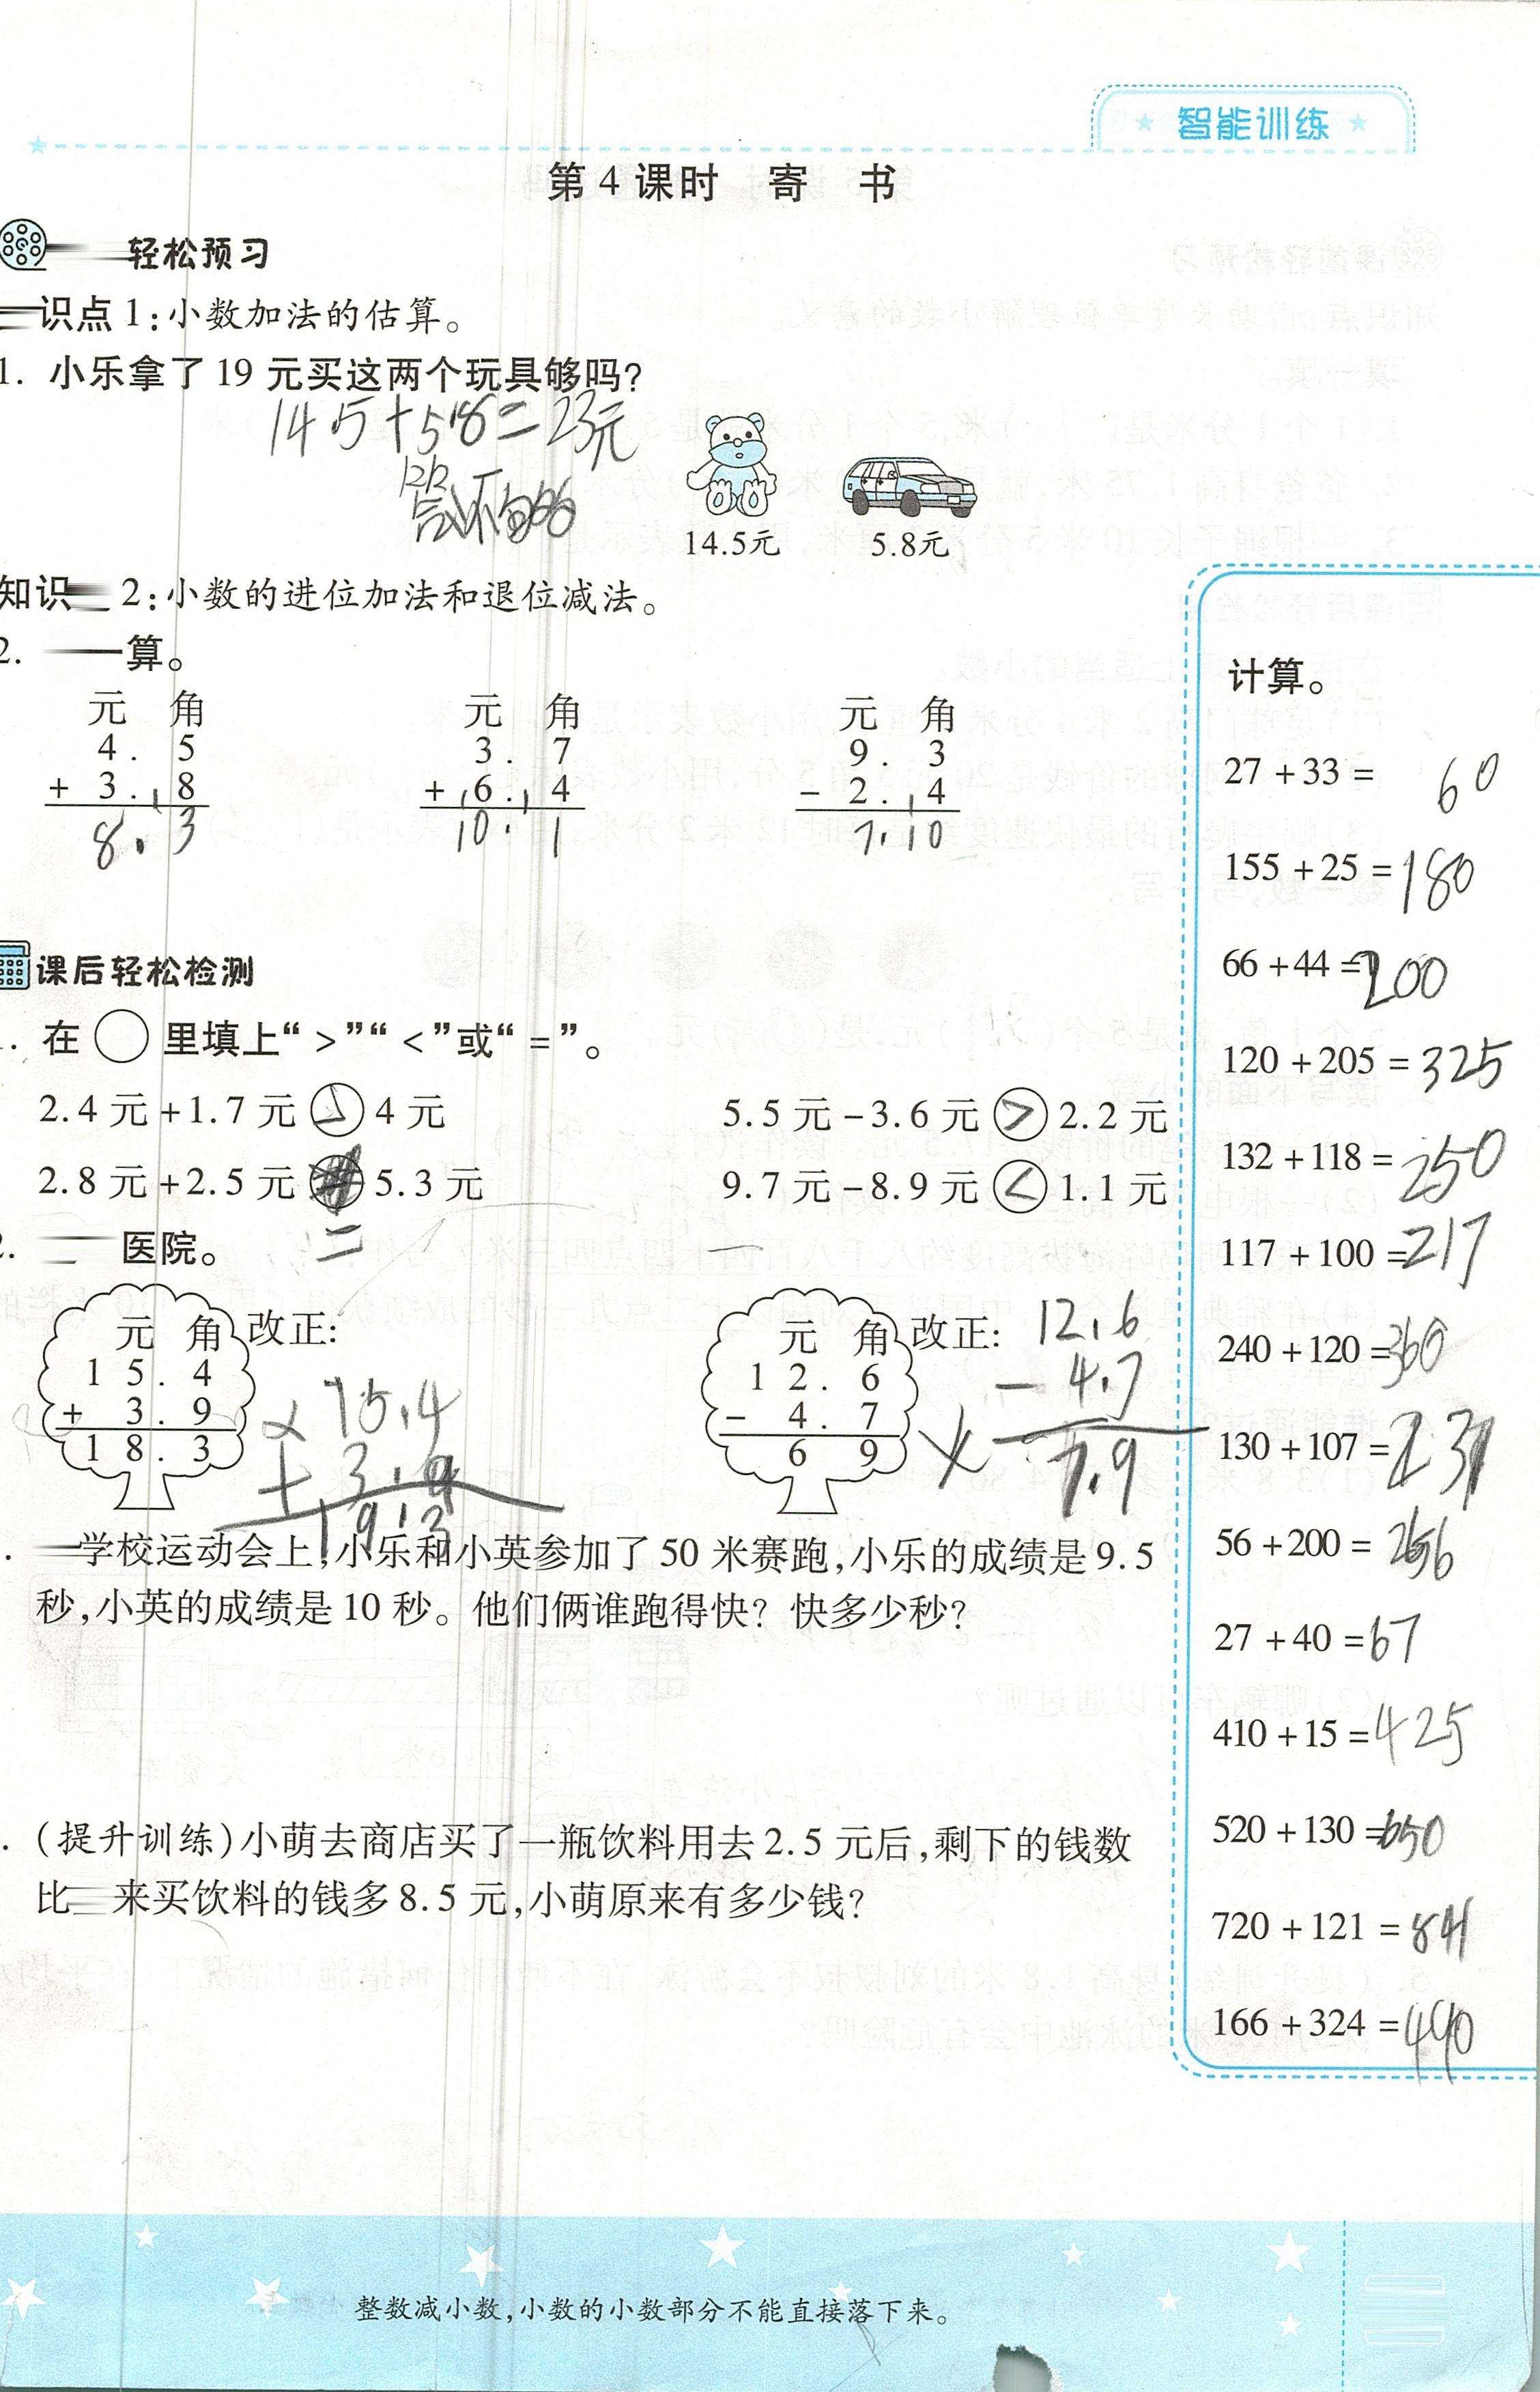 智能训练
第4课时 寄 书
轻松预习
识点1:小数加法的估算。
1. 小乐拿了19元买这两个玩具够吗?
14.5+5.8=23元
14.5元 5.8元
知识 2:小数的进位加法和退位减法。
2. 算。
元 角 元 角 元 角
4. 5 3. 7 9. 3
+ 3. 8 + 6. 4 - 2. 4
8. 3 10. 1 7.10
课后轻松检测
. 在○里填上“>”“<”或“=”。
2.4元+1.7元 4元 5.5元-3.6元>2.2元
2.8元+2.5元 5.3元 9.7元-8.9元<1.1元
=
2. 医院。
元 角 改正: 元 角 改正:
1 5. 4 15.4 1 2. 6 12.6
+ 3. 9 + 3.9 - 4. 7 - 4.7
1 8. 3 19.3 6 9 7.9
. 学校运动会上,小乐和小英参加了50米赛跑,小乐的成绩是9.5
秒,小英的成绩是10秒。他们俩谁跑得快?快多少秒?
. (提升训练)小萌去商店买了一瓶饮料用去2.5元后,剩下的钱数
比 来买饮料的钱多8.5元,小萌原来有多少钱?
计算。
27+33= 60
155+25=180
66+44=200
120+205=325
132+118=250
117+100=217
240+120=360
130+107=237
56+200=256
27+40=67
410+15=425
520+130=650
720+121=841
166+324=490
整数减小数,小数的小数部分不能直接落下来。